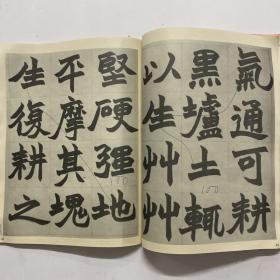 氣通可耕
黑壚土輒
以生艸艸
堅硬强地
平摩其塊
生復耕之